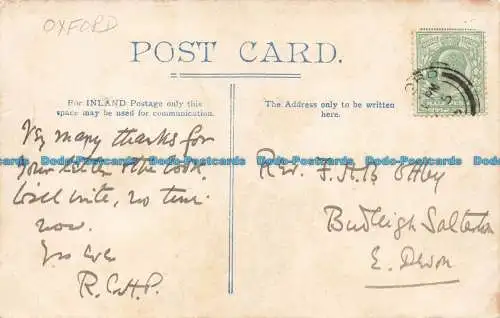 OXFORD
POST CARD.
For INLAND Postage only this
space may be used for communication.
The Address only to be written
here.
Vy many thanks for
your letter & the book.
Will write, no time
now.
Yrs ever
R.C.H.P.
Rev. F.
Budleigh Salterton
E. Devon
Dodo-Postcards Dodo-Postcards Dodo-Postcards Dodo-Postcards